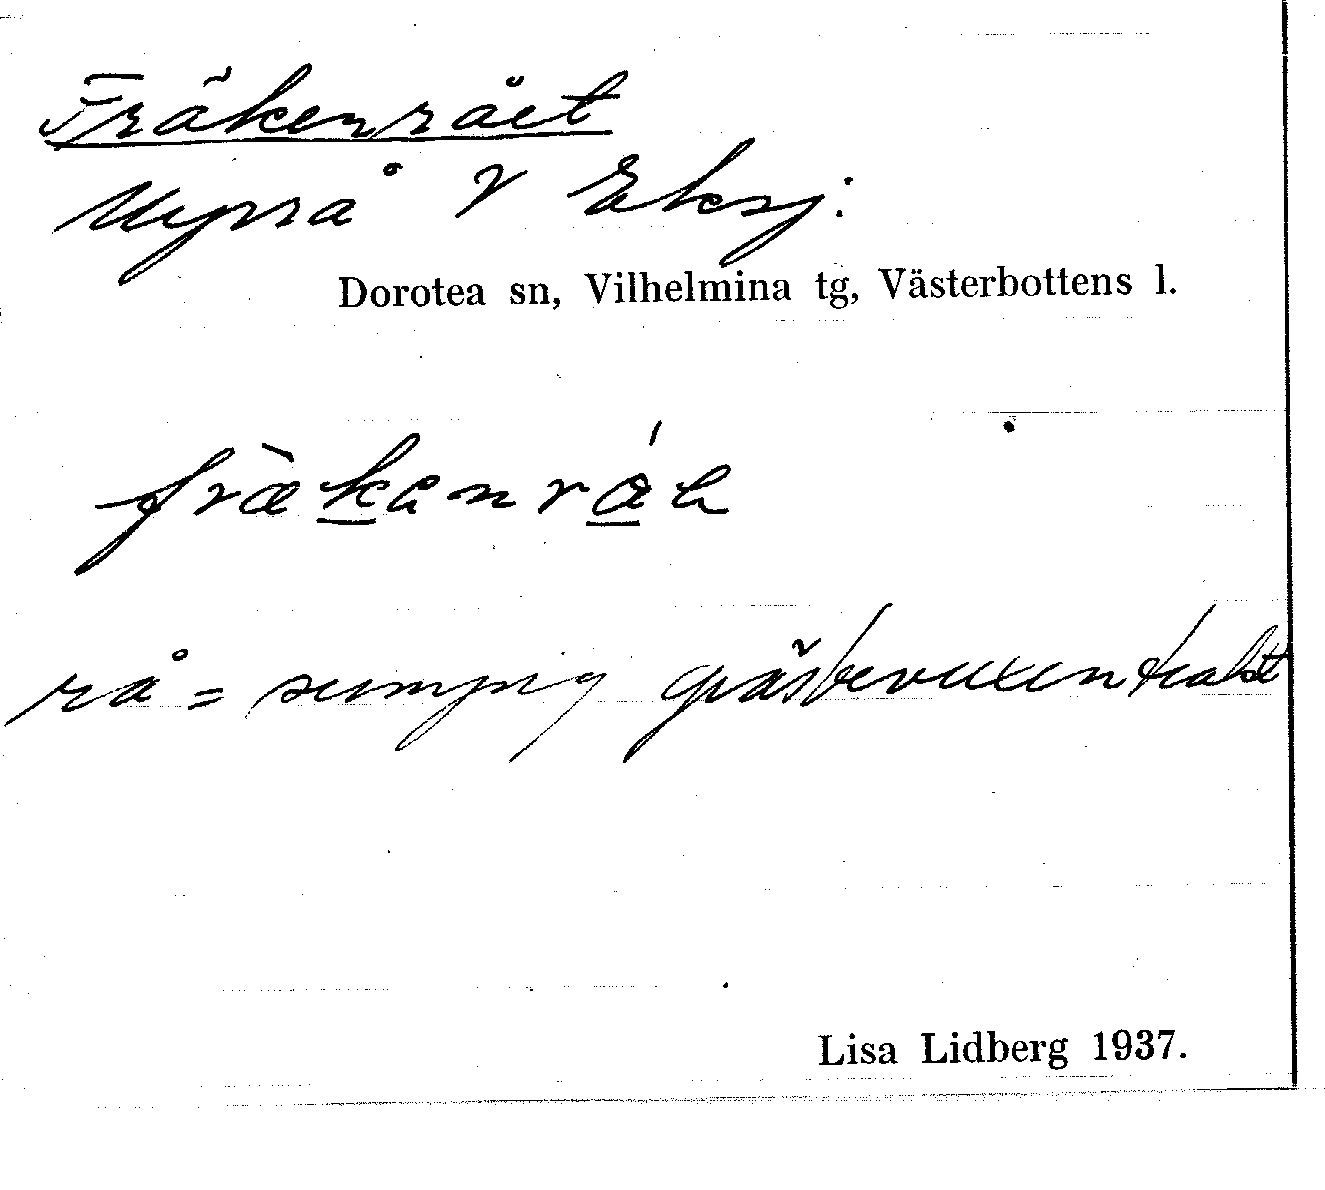 Fräkenrået
Myrrå V Eksj:
Dorotea sn, Vilhelmina tg, Västerbottens l.
frækanráh
rå = sumpig gräsbevuxen trakt
Lisa Lidberg 1937.